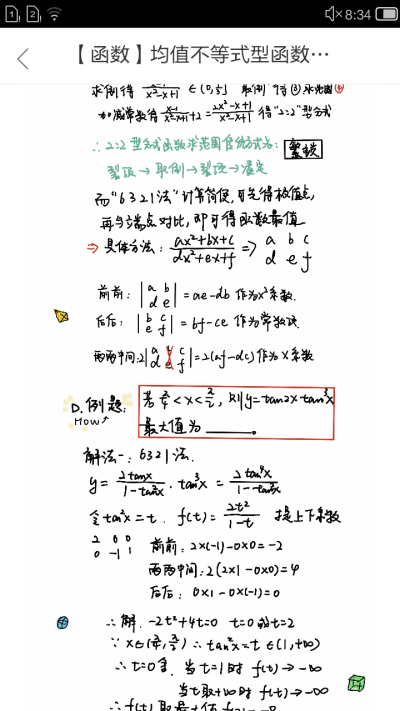 8:34
【函数】均值不等式型函数…
求倒得 1/(x²-x+1) ∈(0,
加减常数得 +2 = (2x²-x+1)/(x²-x+1) 得"2:2"型分式
∴ 2:2型分式函数求范围 方式为: 裂项
裂项 → 取倒 → 裂项 → 凑定
而"6321法"计算简便,可先得极值点,
再与端点对比,即可得函数最值
⇒ 具体方法: (ax²+bx+c)/(dx²+ex+f) ⇒ a b c
d e f
前前: |a b; d e| = ae-db 作为x²系数.
后后: |b c; e f| = bf-ce 作为常数项.
两两中间: 2|a b c; d e f| = 2(af-dc) 作为x系数
D. 例题: 若 π/4<x<π/2, 则y=tan2x·tan³x
HOW↑ 最大值为______.
解法一: 6321法.
y = 2tanx/(1-tan²x) · tan³x = 2tan⁴x/(1-tan²x)
令tan²x=t. f(t)= 2t²/(1-t) 提上下系数
2 0 0
0 -1 1 前前: 2×(-1)-0×0=-2
两两中间: 2(2×1-0×0)=4
后后: 0×1-0×(-1)=0
∴ 解. -2t²+4t=0 t=0或t=2
∵ x∈(π/4, π/2) ∴ tan²x=t∈(1,+∞)
∴ t=0舍. 当t=1时 f(t)→-∞
当t取+∞时 f(t)→-∞
∴ f(t)取最大值 f(2)=-8